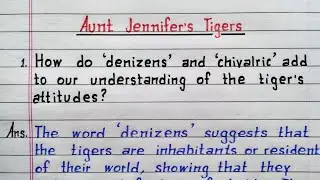 Aunt Jennifer's Tigers
1. How do 'denizens' and 'chivalric' add
to our understanding of the tiger's
attitudes?
Ans. The word 'denizens' suggests that
the tigers are inhabitants or resident
of their world, showing that they